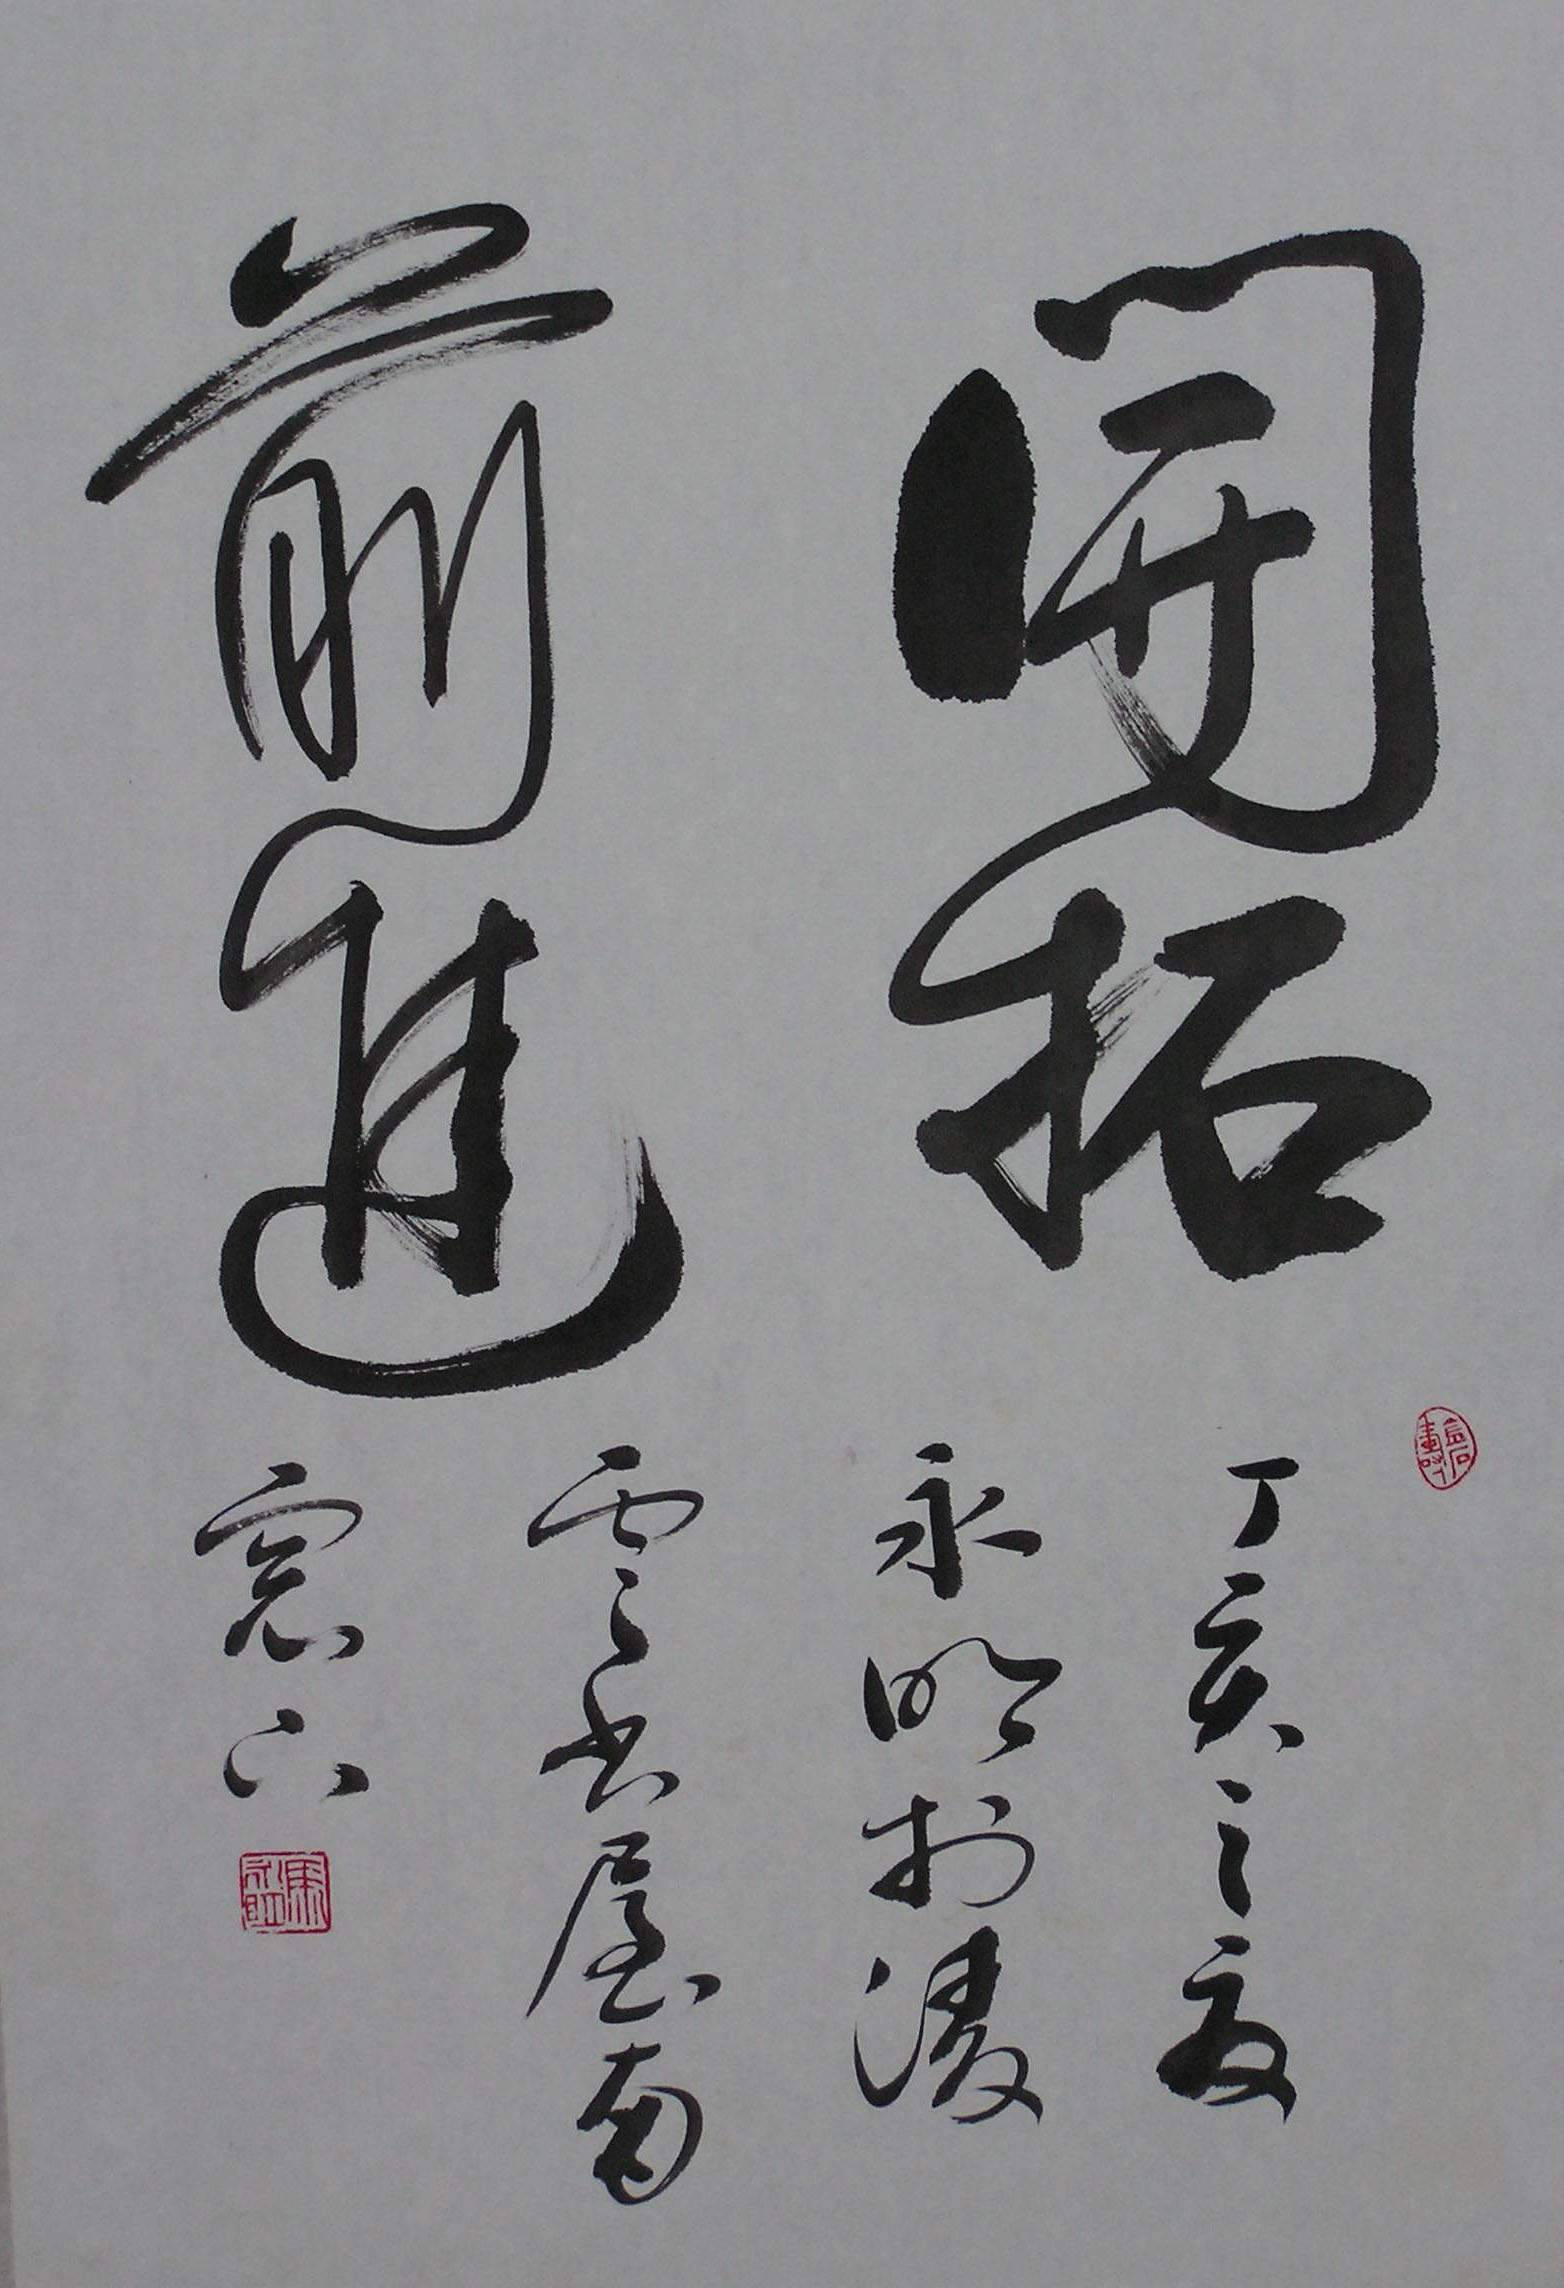 開拓
前進
丁亥之夏
永明於凌
雲書屋南
窓下